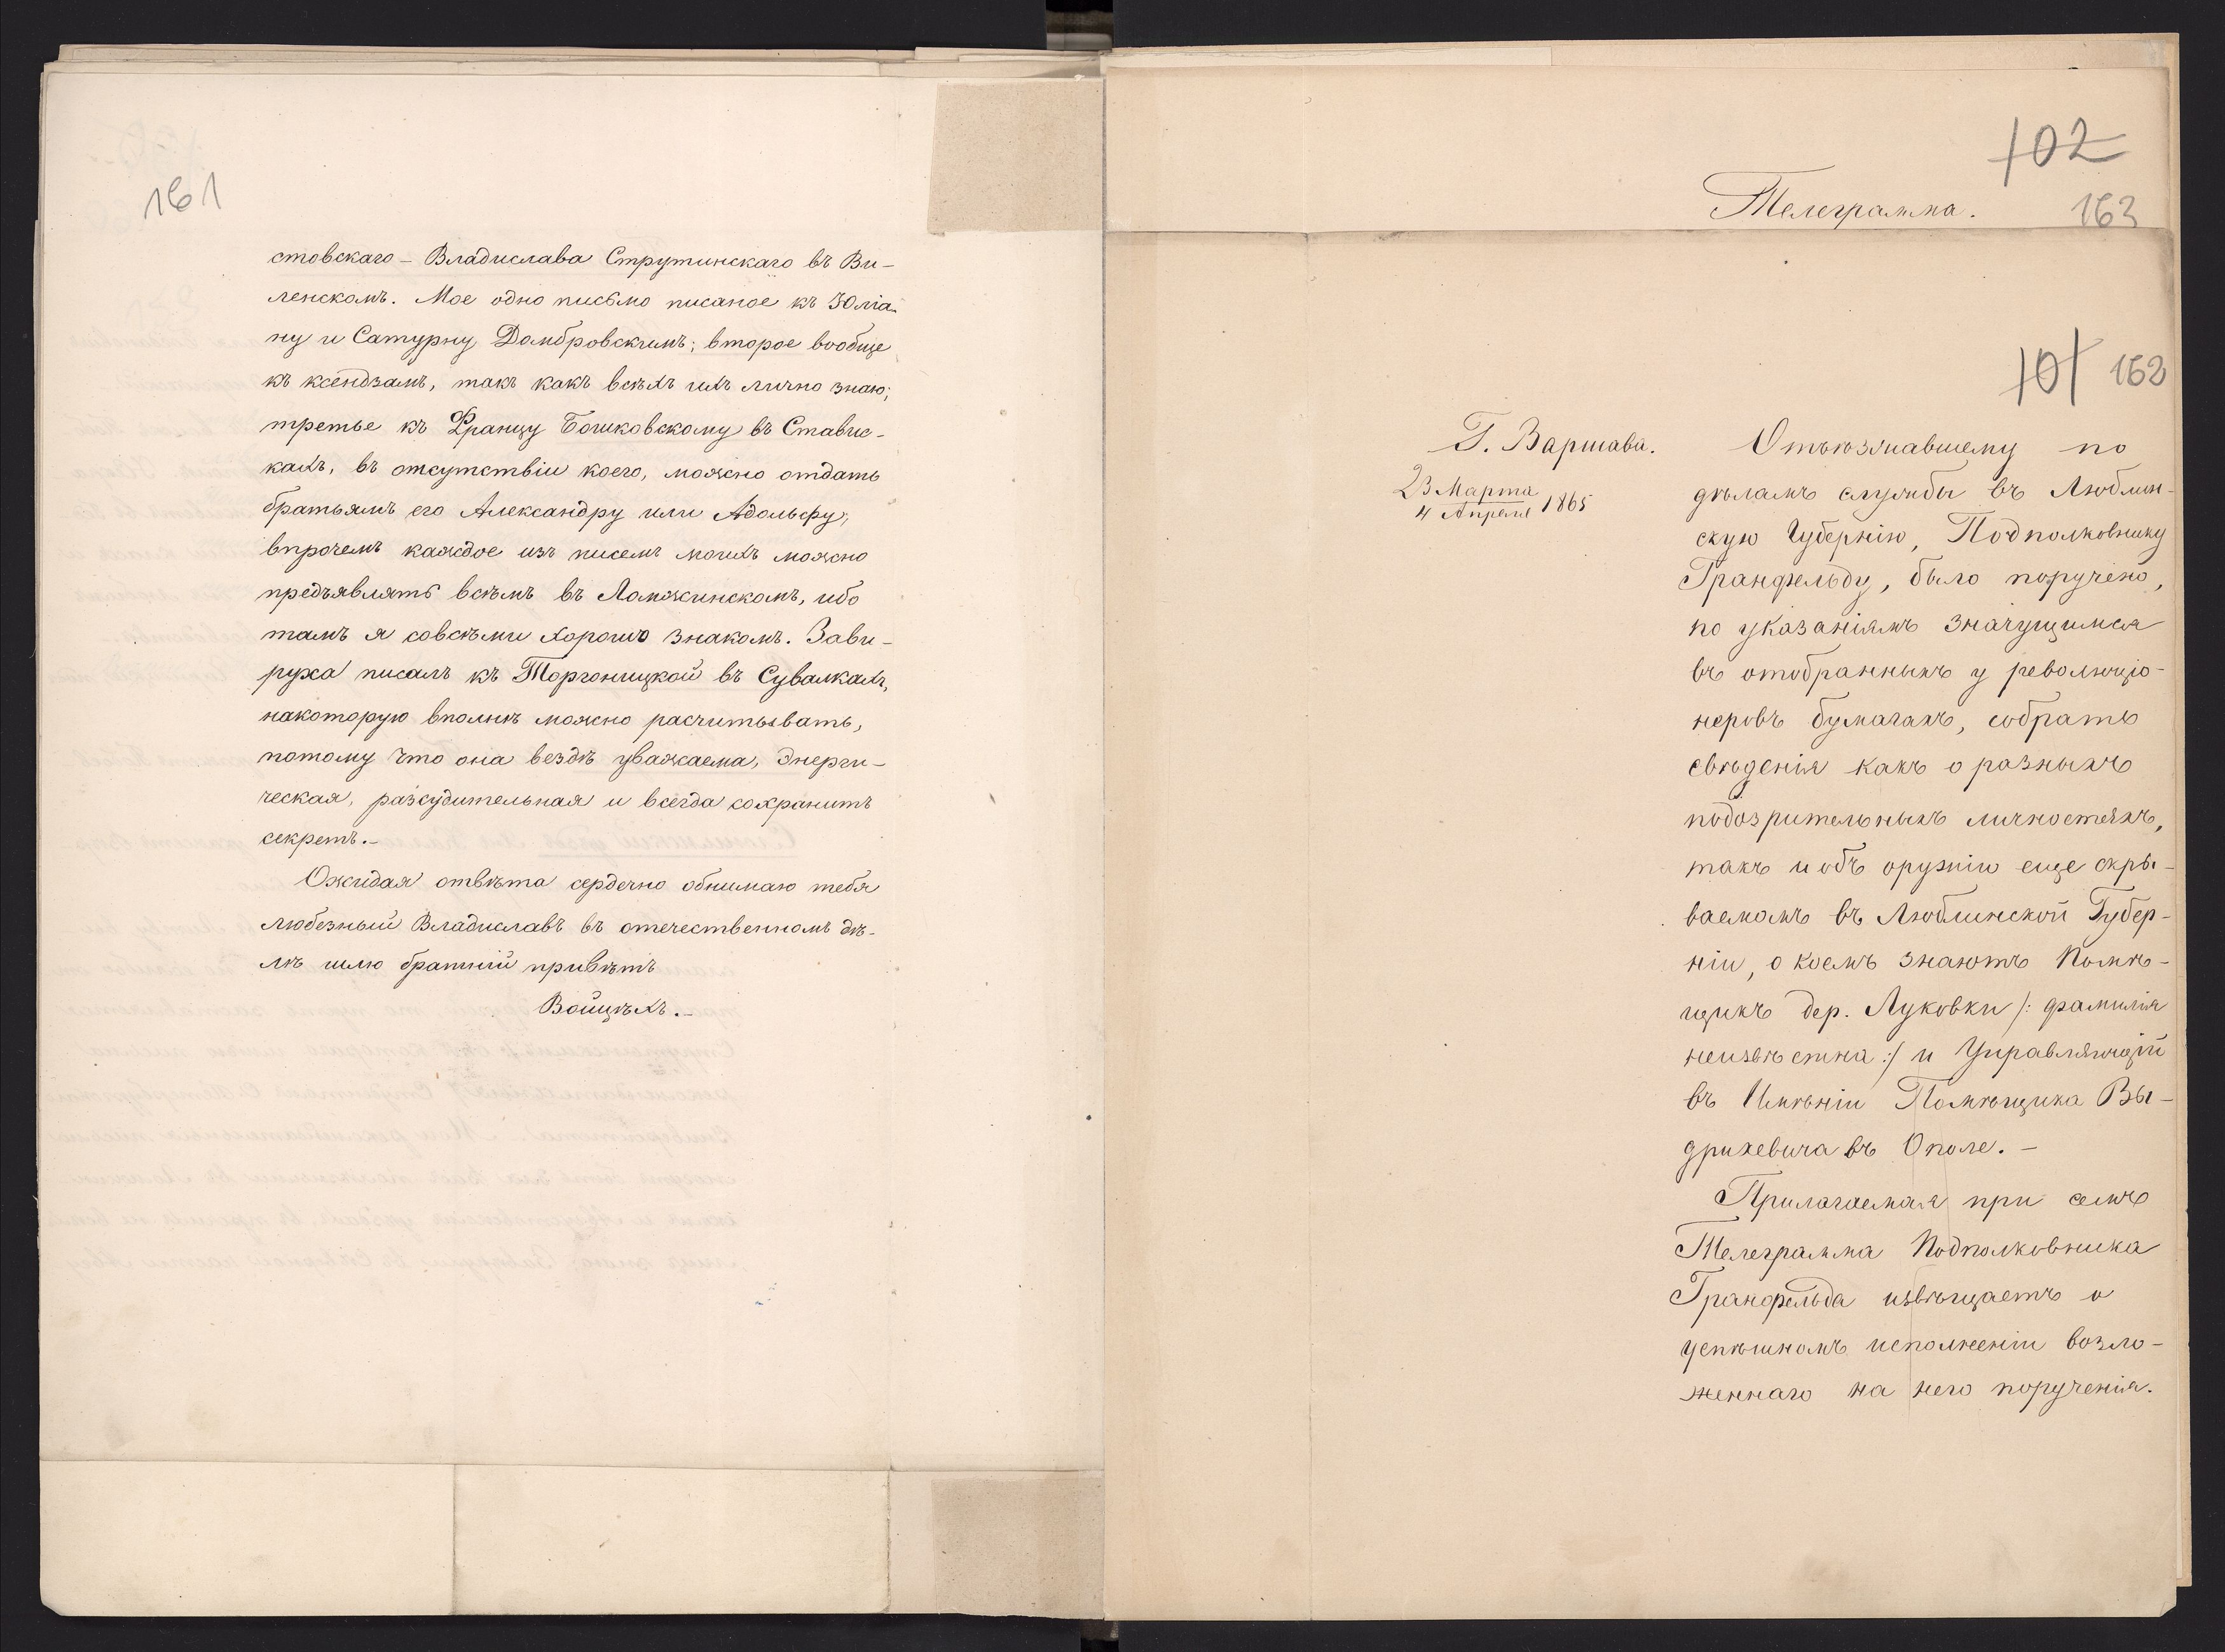 161
стовскаго – Владислава Струтинскаго въ Ви-
ленскомъ. Мое одно письмо писаное къ Юліа-
ну и Сатурну Домбровскимъ; второе вообще
къ ксендзамъ, такъ какъ всѣхъ ихъ лично знаю;
третье къ Францу Бошковскому въ Ставис-
кахъ, въ отсутствіи коего, можно отдать
братьямъ его Александру или Адольфу;
впрочемъ каждое изъ писемъ моихъ можно
предъявлять всѣмъ въ Ломжинскомъ, ибо
тамъ я совсѣми хорошо знакомъ. Зави-
руха писалъ къ Торгоницкой въ Сувалкахъ,
накоторую вполнѣ можно расчитывать,
потому что она вездѣ уважаема, энерги-
ческая, разсудительная и всегда сохранитъ
секретъ.–
Ожидая отвѣта сердечно обнимаю тебя
любезный Владиславъ въ отечественномъ дѣ-
лѣ шлю братній привѣтъ
Войцѣхъ.–
102
Телеграмма.
163
101 162
Г. Варшава.
23 Марта
4 Апреля 1865
Отъѣзжавшему по
дѣламъ службы въ Люблин-
скую Губернію, Подполковнику
Гранфельду, было поручено,
по указаніямъ значущимся
въ отобранныхъ у революціо-
неровъ бумагахъ, собрать
свѣденія какъ о разныхъ
подозрительныхъ личностяхъ,
такъ и объ оружіи еще скры-
ваемомъ въ Люблинской Губер-
ніи, о коемъ знаютъ Помѣ-
щикъ дер. Луковки /: фамилія
неизвѣстна :/ и Управляющій
въ Имѣніи Помѣщика Вы-
дрихевича въ Ополе. –
Прилагаемая при семъ
Телеграмма Подполковника
Гранфельда извѣщаетъ о
успѣшномъ исполненіи возло-
женнаго на него порученія.